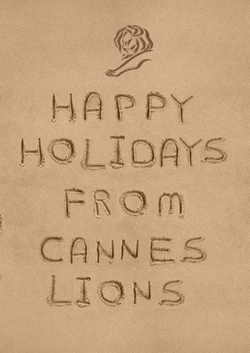 HAPPY
HOLIDAYS
FROM
CANNES
LIONS